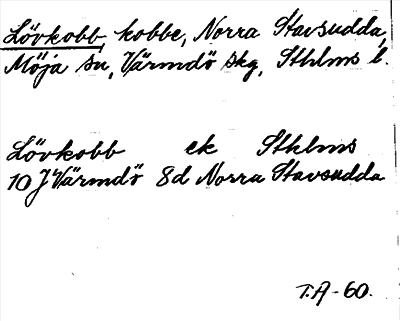 Lövkobb, kobbe, Norra Stavsudda,
Möja sn, Värmdö skg, Sthlms l.
Lövkobb ek Sthlms
10 J Värmdö 8d Norra Stavsudda
T.A-60.